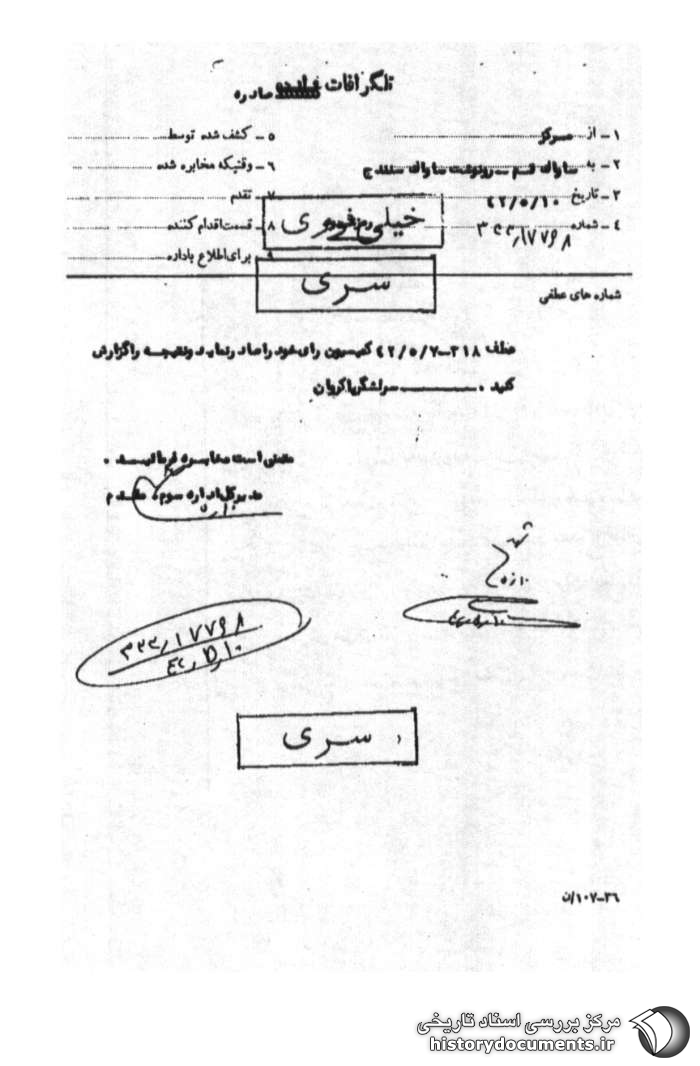 تلگرافات صادره
۱- از مرکز
۲- به ساواک قم - رونوشت ساواک سنندج
۳- تاریخ ۴۲/۵/۱۰
۴- شماره ۳۲۲/۱۷۷۶۸
۵- کشف شده توسط
۶- وقتیکه مخابره شده
۷- تقدم
خیلی فوری
۸- قسمت اقدام کننده
۹- برای اطلاع باداره
سری
شماره های عطفی
عطف ۳۱۸-۴۲/۵/۷ کمیسیون رای خود را صادر نماید و نتیجه را گزارش
کنید . سرلشگر پاکروان
متمنی است مخابره فرمائید .
مدیرکل اداره سوم مقدم
۱۰/۵
۳۲۲/۱۷۷۶۸
۴۲/۵/۱۰
سری
۳۶-۱۰۷/ن
مرکز بررسی اسناد تاریخی
historydocuments.ir